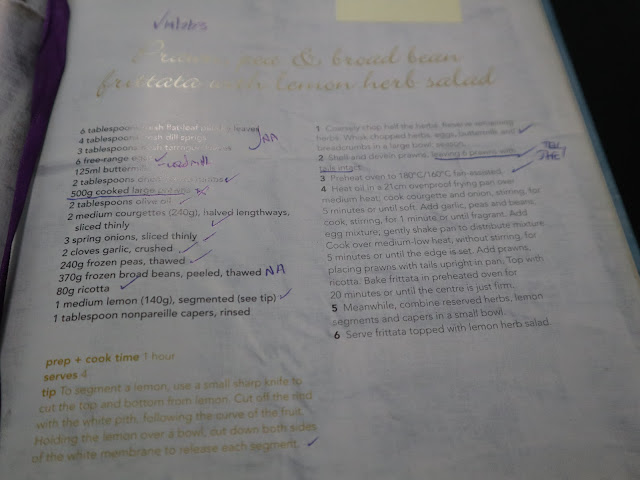 Prawn, pea & broad bean
frittata with lemon herb salad
6 tablespoons fresh flat-leaf leaves
4 tablespoons fresh dill sprigs
3 tablespoons fresh tarragon
NA
6 free-range
125ml buttermilk
2 tablespoons
500g cooked large prawns
2 tablespoons olive oil
2 medium courgettes (240g), halved lengthways,
sliced thinly
3 spring onions, sliced thinly
2 cloves garlic, crushed
240g frozen peas, thawed
370g frozen broad beans, peeled, thawed NA
80g ricotta
1 medium lemon (140g), segmented (see tip)
1 tablespoon nonpareille capers, rinsed
prep + cook time 1 hour
serves 4
tip To segment a lemon, use a small sharp knife to
cut the top and bottom from lemon. Cut off the rind
with the white pith, following the curve of the fruit.
Holding the lemon over a bowl, cut down both sides
of the white membrane to release each segment.
1 Coarsely chop half the herbs. Reserve remaining
herbs. Whisk chopped herbs, eggs, buttermilk and
breadcrumbs in a large bowl; season.
2 Shell and devein prawns, leaving 6 prawns with
tails intact.
3 Preheat oven to 180°C/160°C fan-assisted.
4 Heat oil in a 21cm ovenproof frying pan over
medium heat; cook courgette and onion, stirring, for
5 minutes or until soft. Add garlic, peas and beans;
cook, stirring, for 1 minute or until fragrant. Add
egg mixture; gently shake pan to distribute mixture.
Cook over medium-low heat, without stirring, for
5 minutes or until the edge is set. Add prawns,
placing prawns with tails upright in pan. Top with
ricotta. Bake frittata in preheated oven for
20 minutes or until the centre is just firm.
5 Meanwhile, combine reserved herbs, lemon
segments and capers in a small bowl.
6 Serve frittata topped with lemon herb salad.